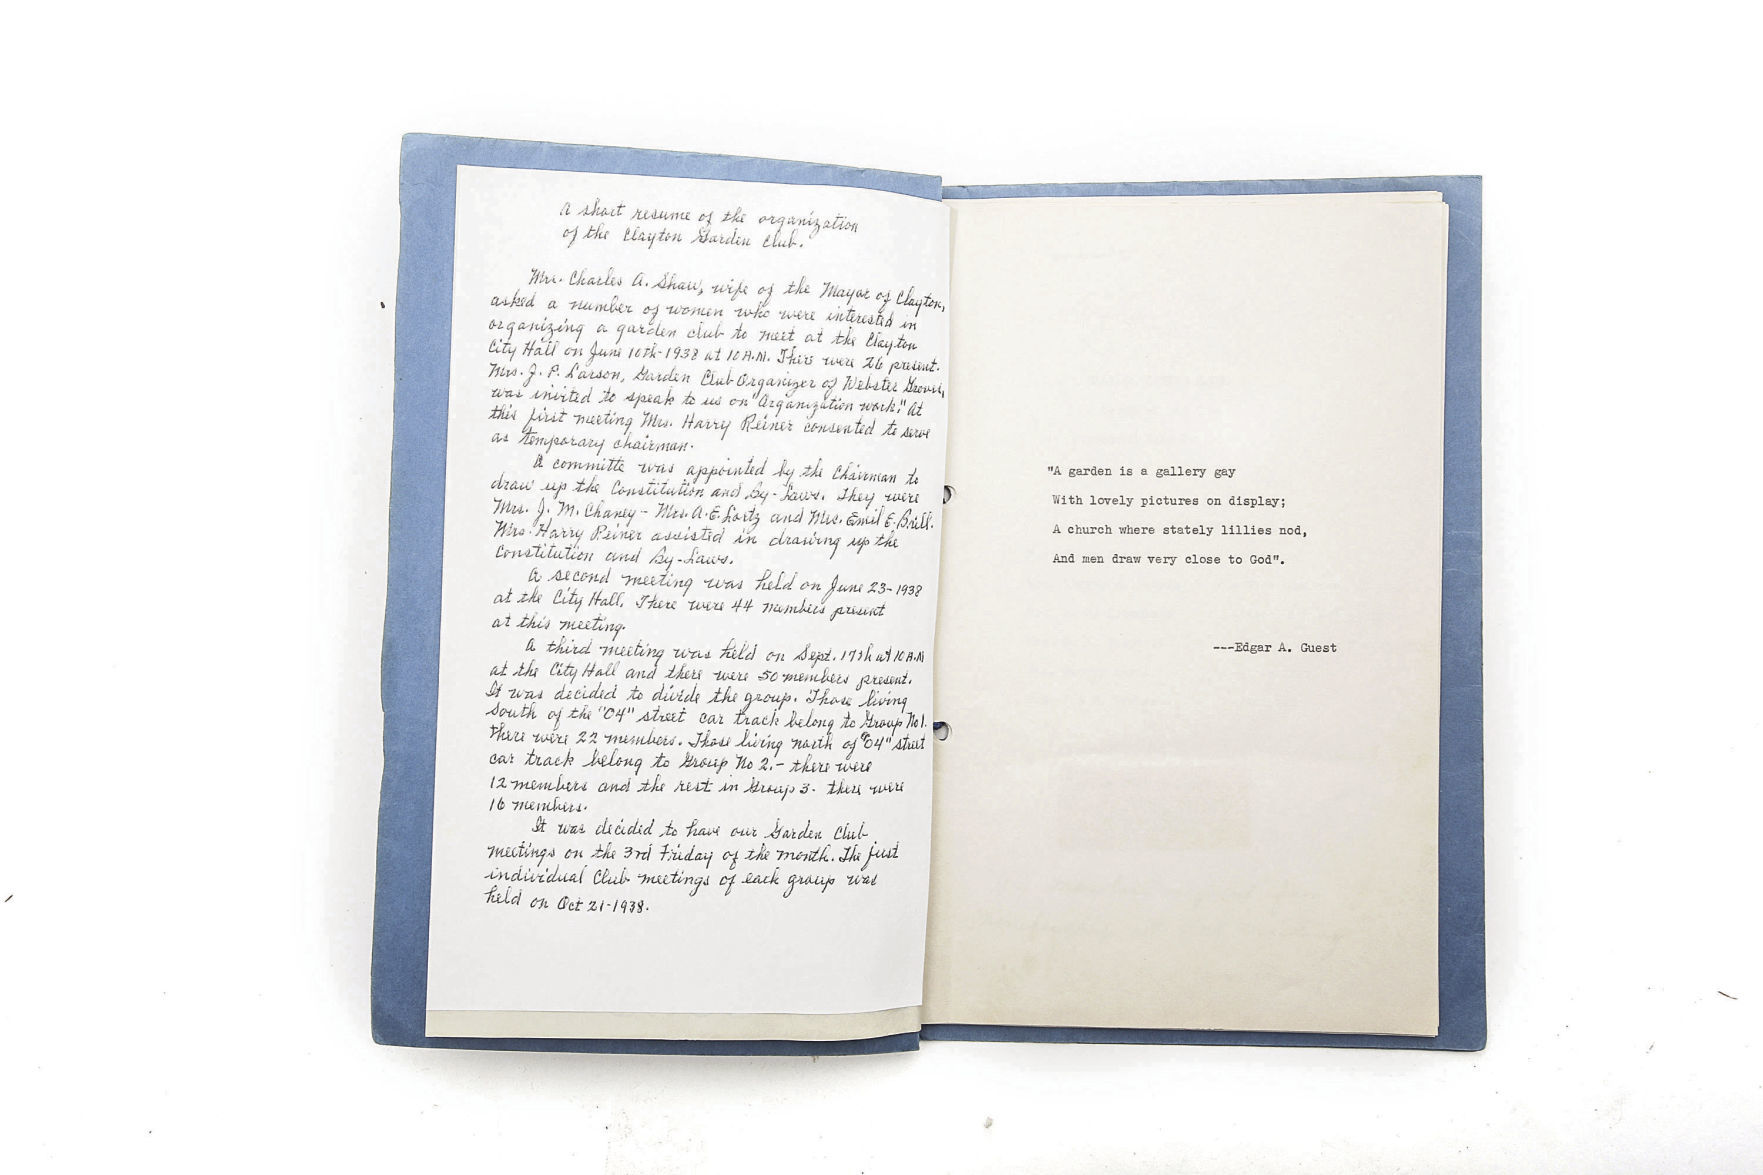 A short resume of the organization
of the Clayton Garden Club.
Mrs. Charles A. Shaw, wife of the Mayor of Clayton,
asked a number of women who were interested in
organizing a garden club to meet at the Clayton
City Hall on June 10th-1938 at 10 A.M. There were 26 present.
Mrs. J. P. Larson, Garden Club Organizer of Webster Groves,
was invited to speak to us on "Organization work." At
this first meeting Mrs. Harry Reiner consented to serve
as temporary chairman.
A committe was appointed by the Chairman to
draw up the Constitution and By-Laws. They were
Mrs. J. M. Chaney - Mrs. A. E. Lortz and Mrs. Emil E. Brill.
Mrs. Harry Reiner assisted in drawing up the
Constitution and By-Laws.
A second meeting was held on June 23-1938
at the City Hall. There were 44 members present
at this meeting.
A third meeting was held on Sept. 17th at 10 A.M
at the City Hall and there were 50 members present.
It was decided to divide the group. Those living
South of the "04" street car track belong to Group No 1.
there were 22 members. Those living north of "04" street
car track belong to Group No 2. - there were
12 members and the rest in Group 3. there were
16 members.
It was decided to have our Garden Club
meetings on the 3rd Friday of the month. The first
individual Club meetings of each group was
held on Oct 21-1938.
"A garden is a gallery gay
With lovely pictures on display;
A church where stately lillies nod,
And men draw very close to God".
---Edgar A. Guest